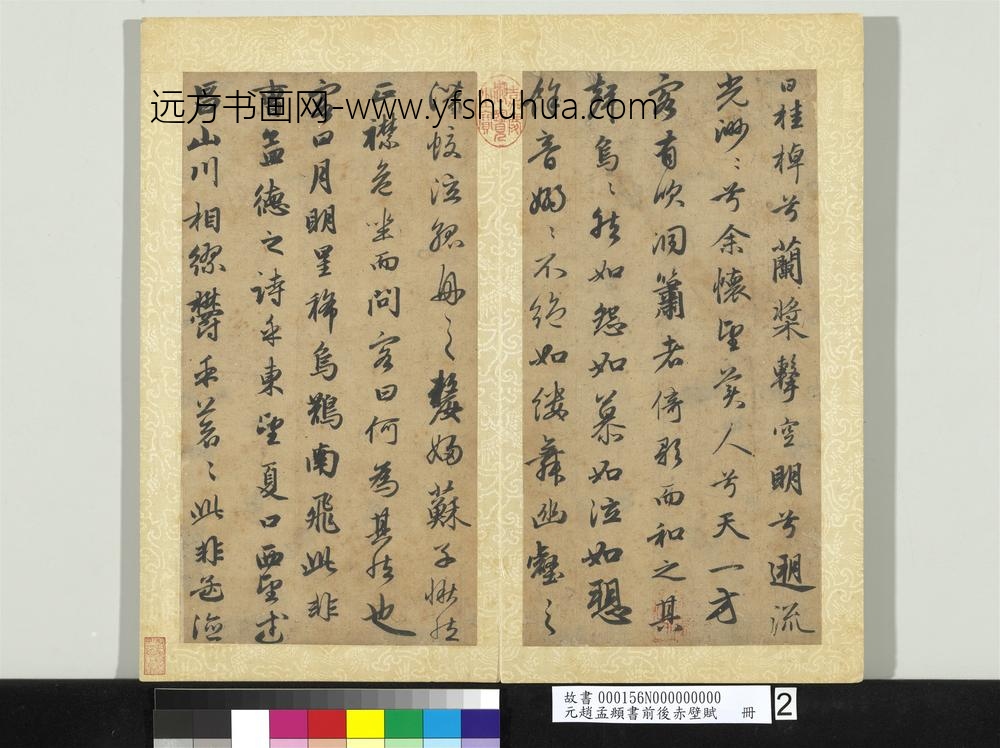 远方书画网-www.yfshuhua.com
曰桂棹兮蘭槳擊空明兮遡流
光渺〻兮余懷望美人兮天一方
客有吹洞簫者倚歌而和之其
聲烏〻然如怨如慕如泣如愬
餘音嫋〻不絕如縷舞幽壑之
潛蛟泣孤舟之嫠婦蘇子愀然
正襟危坐而問客曰何為其然也
客曰月明星稀烏鵲南飛此非
曹孟德之詩乎東望夏口西望武
昌山川相繆鬱乎蒼〻此非孟德
故書 000156N000000000
元趙孟頫書前後赤壁賦 冊
2